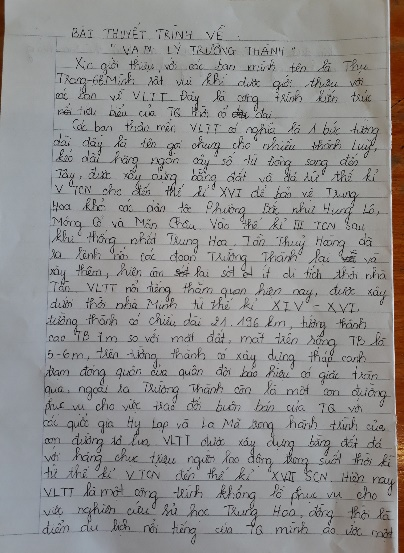 BÀI THUYẾT TRÌNH VỀ
"VẠN LÝ TRƯỜNG THÀNH"
Xin giới thiệu với các bạn mình tên là Thu
Trang-6B Mình rất vui khi được giới thiệu với
các bạn về VLTT. Đây là công trình kiến trúc
tiêu biểu của TQ thời cổ đại
Các bạn thân mến VLTT có nghĩa là 1 bức tường
dài đây là tên gọi chung cho nhiều thành luỹ,
kéo dài hàng ngàn cây số từ Đông sang đến
Tây, được xây dựng bằng đất và đá từ thế kỉ
V TCN cho đến thế kỉ XVI để bảo vệ Trung
Hoa khỏi các dân tộc Phương Bắc như Hung Lô,
Mông Cổ và Mãn Châu. Vào thế kỉ III TCN sau
khi thống nhất Trung Hoa, Tần Thuỷ Hoàng đã
ra lệnh nối các đoạn Trường Thành lại và
xây thêm, hiện còn sót lại rất ít di tích thời nhà
Tần VLTT nổi tiếng thăm quan hiện nay, được xây
dưới thời nhà Minh từ thế kỉ XIV - XVI.
tường thành có chiều dài 21.196 km, tường thành
cao TB 7m so với mặt đất, mặt trên rộng TB là
5-6m, trên tường thành có xây dựng tháp canh
trạm đóng quân của quân đội báo hiệu có giặc tràn
qua, ngoài ra Trường Thành còn là một con đường
phục vụ cho việc trao đổi buôn bán của TQ với
các quốc gia Hy Lạp và La Mã song hành trình của
con đường tơ lụa VLTT được xây dựng bằng đất đá
với hàng chục triệu người lao động trong suốt thời kì
từ thế kỉ V TCN đến thế kỉ XVII SCN. Hiện nay
VLTT là một công trình khổng lồ phục vụ cho
việc nghiên cứu lịch sử học Trung Hoa, đồng thời là
điểm du lịch nổi tiếng của TQ mình ao ước một